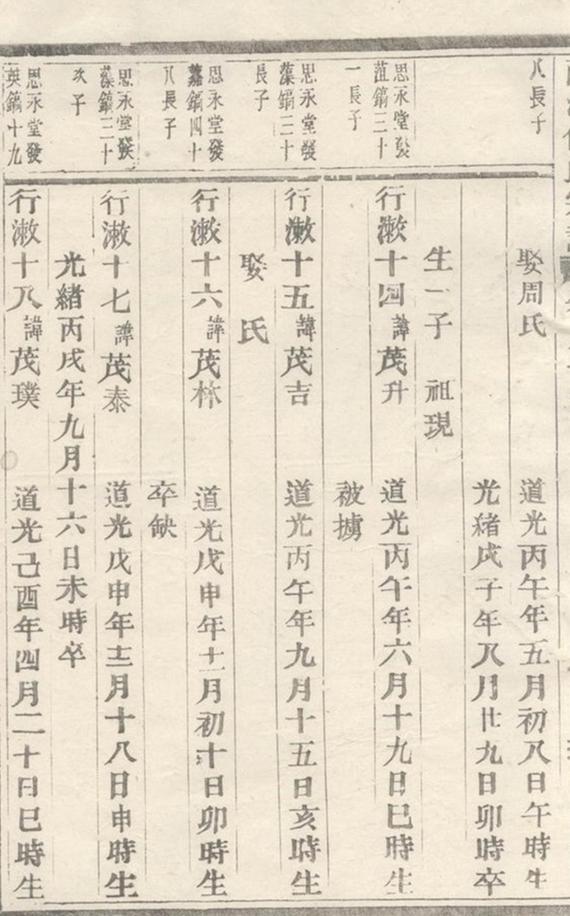 八長子
娶周氏　道光丙午年五月初八日午時生
光緒戊子年八月廿九日卯時卒
生一子　祖現
思永堂發
菹鎬三十
一長子
行漱十四諱茂升　道光丙午年六月十九日巳時生
被擄
思永堂發
藻鎬三十
長子
行漱十五諱茂吉　道光丙午年九月十五日亥時生
娶　氏
思永堂發
鎬四十
八長子
行漱十六諱茂林　道光戊申年十一月初十日卯時生
卒缺
思永堂發
藻鎬三十
次子
行漱十七諱茂泰　道光戊申年十二月十八日申時生
光緒丙戌年九月十六日未時卒
思永堂發
英鎬十九
行漱十八諱茂璞　道光己酉年四月二十日巳時生